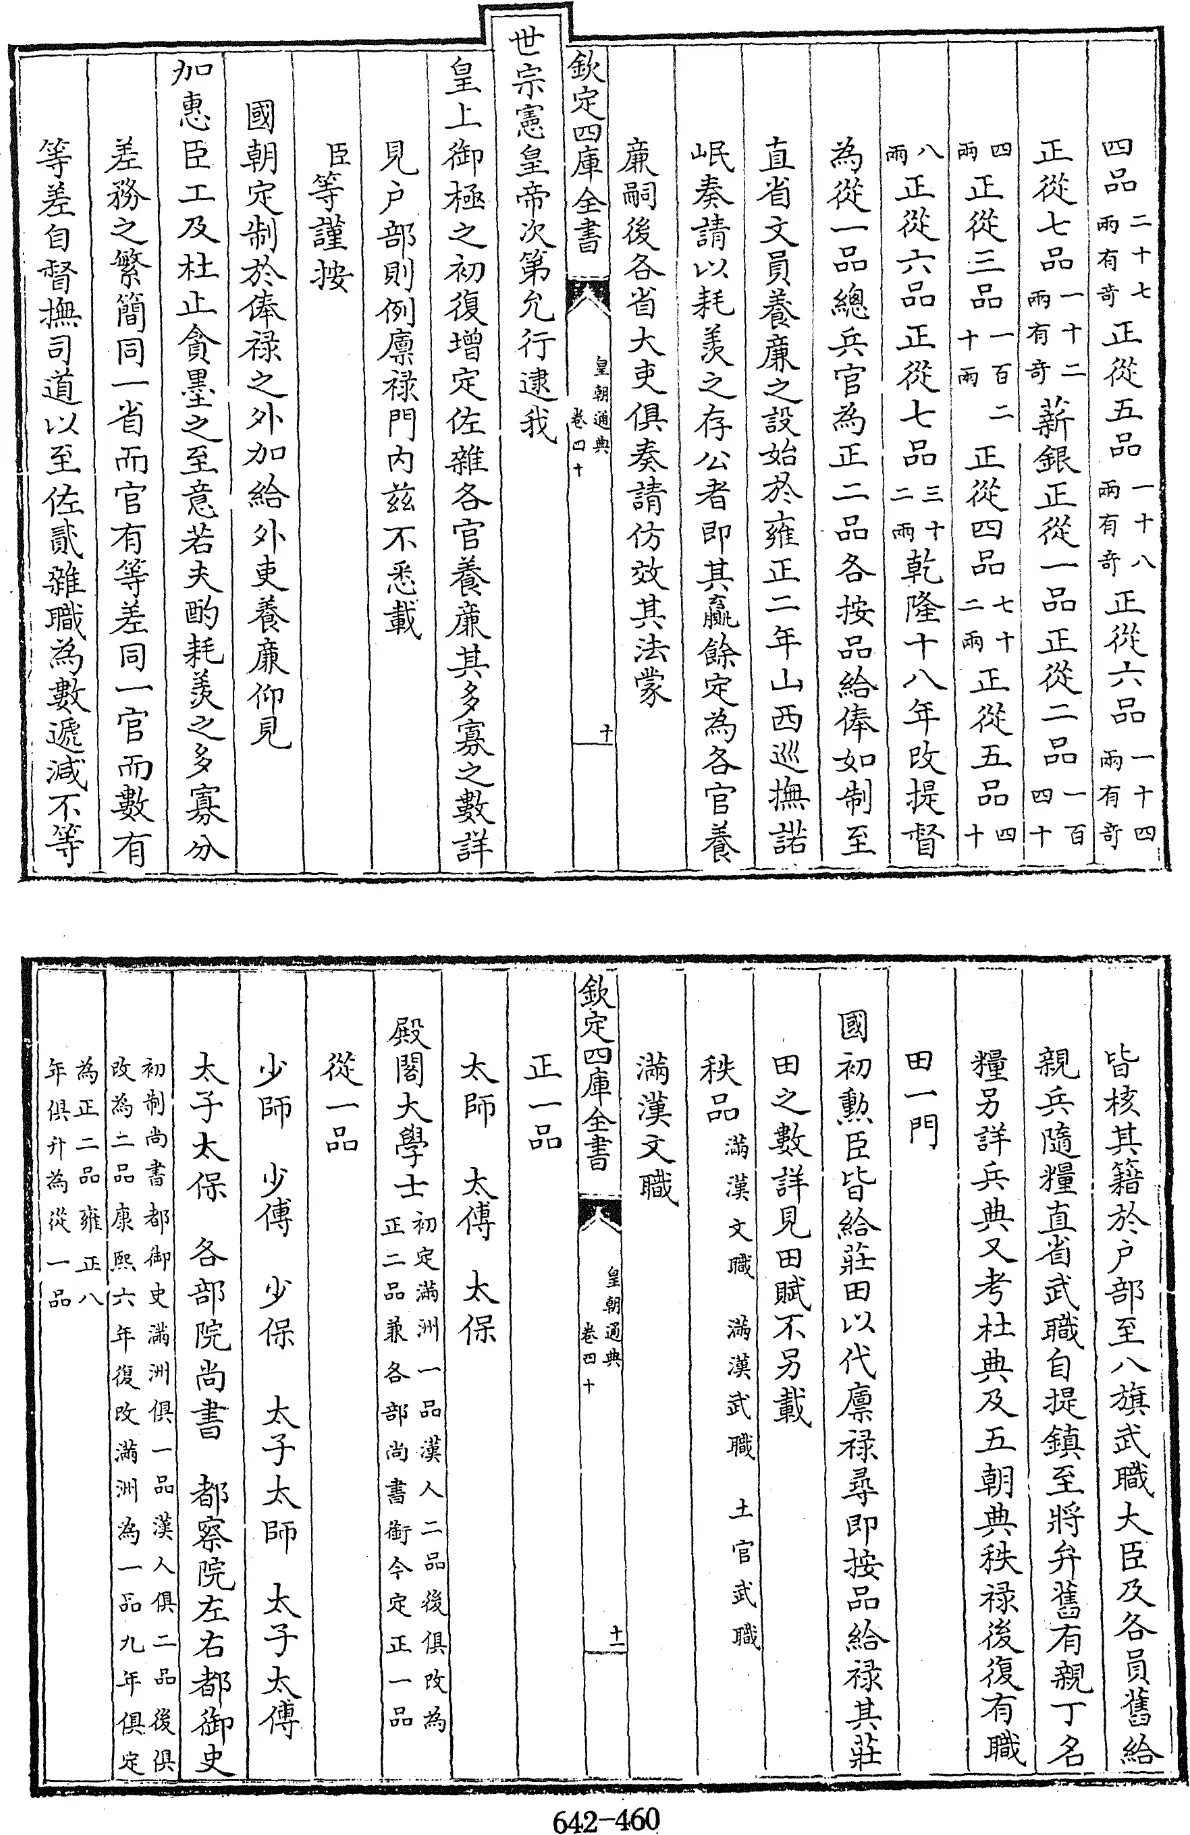 四品二十七兩有奇正從五品一十八兩有奇正從六品一十四兩有奇
正從七品一十二兩有奇薪銀正從一品正從二品一百四十
四兩正從三品一百二十兩正從四品七十二兩正從五品四十
八兩正從六品正從七品三十二兩乾隆十八年改提督
為從一品總兵官為正二品各按品給俸如制至
直省文員養廉之設始於雍正二年山西巡撫諾
岷奏請以耗羨之存公者即其贏餘定為各官養
廉嗣後各省大吏俱奏請仿效其法蒙
欽定四庫全書 皇朝通典卷四十 十
世宗憲皇帝次第允行逮我
皇上御極之初復增定佐雜各官養廉其多寡之數詳
見户部則例廪祿門内兹不悉載
臣等謹按
國朝定制於俸祿之外加給外吏養廉仰見
加惠臣工及杜止貪墨之至意若夫酌耗羨之多寡分
差務之繁簡同一省而官有等差同一官而數有
等差自督撫司道以至佐貳雜職為數遞減不等
皆核其籍於户部至八旗武職大臣及各員舊給
親兵隨糧直省武職自提鎮至將弁舊有親丁名
糧另詳兵典又考杜典及五朝典秩祿後復有職
田一門
國初勲臣皆給莊田以代廪祿尋即按品給祿其莊
田之數詳見田賦不另載
秩品 滿漢文職 滿漢武職 土官武職
滿漢文職
欽定四庫全書 皇朝通典卷四十 十一
正一品
太師 太傅 太保
殿閣大學士初定滿洲一品漢人二品後俱改為正二品兼各部尚書銜今定正一品
從一品
少師 少傅 少保 太子太師 太子太傅
太子太保 各部院尚書 都察院左右都御史
初制尚書都御史滿洲俱一品漢人俱二品後俱改為二品康熙六年復改滿洲為一品九年俱定
為正二品雍正八年俱升為從一品
642-460